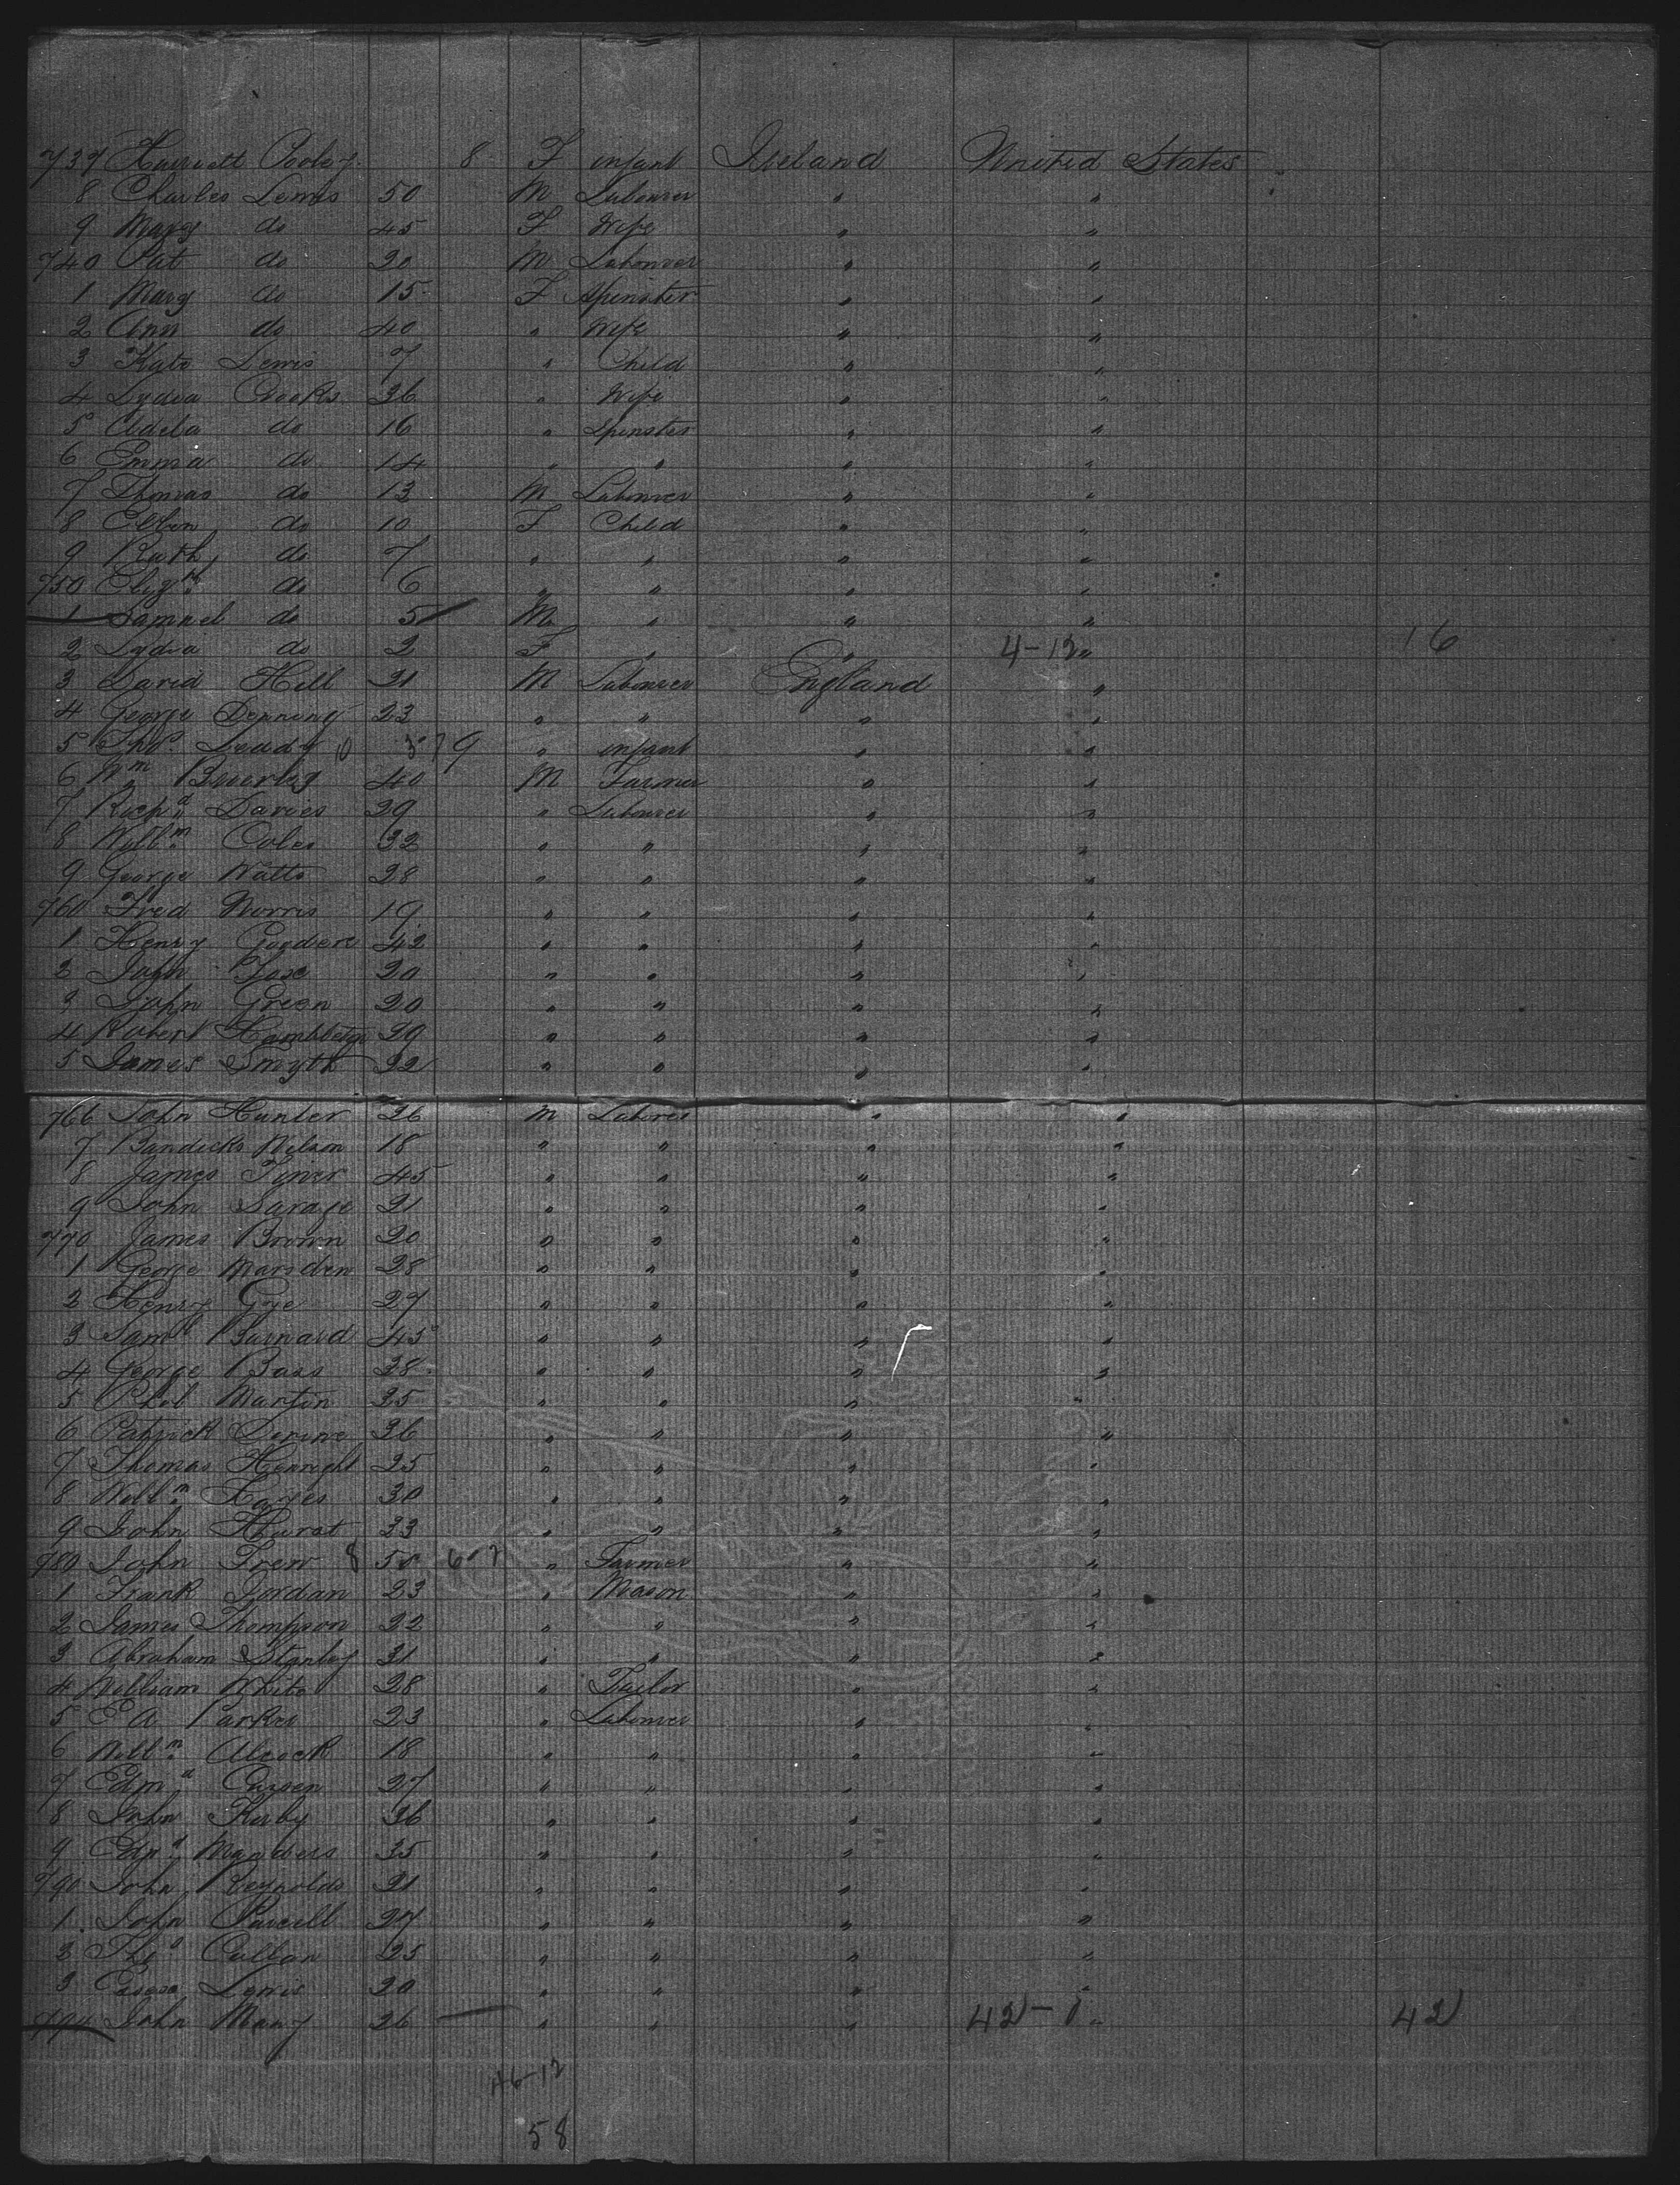 737 Harriett Cooksy 8 F infant Ireland United States
8 Charles Lewis 50 M Labourer " "
9 Mary do 45 F Wife " "
740 Pat do 20 M Labourer " "
1 Mary do 15 F Spinster " "
2 Ann do 40 " Wife " "
3 Kate Lewis 7 " Child " "
4 Lydia Cooks 36 " Wife " "
5 Adela do 16 " Spinster " "
6 Emma do 14 " " " "
7 Thomas do 13 M Labourer " "
8 Ellen do 10 F Child " "
9 Ruth do 7 " " " "
750 Elizth do 6 " " " "
1 Samuel do 5 M " " "
2 Lydia do 2 F " " 4-12 " 16
3 David Hill 31 M Labourer England "
4 George Denning 23 " " " "
5 Thos Leady 10 9 " infant " "
6 Wm 40 M Farmer " "
7 Richd Davies 29 " Labourer " "
8 Willm Coles 32 " " " "
9 George Watts 28 " " " "
760 Fred Norris 19 " " " "
1 Henry 42 " " " "
2 John Fox 20 " " " "
3 John Green 20 " " " "
4 Robert 29 " " " "
5 James Smyth 22 " " " "
766 John Hunter 26 M Laborer " "
7 Wilson 18 " " " "
8 James Tyner 45 " " " "
9 John Savage 21 " " " "
770 James Brown 20 " " " "
1 George Marsden 28 " " " "
2 Henry Gye 27 " " " "
3 Saml Barnard 45 " " " "
4 George Bass 38 " " " "
5 Martin 25 " " " "
6 Patrick 36 " " " "
7 Thomas 25 " " " "
8 Willm Hayes 30 " " " "
9 John Hurst 33 " " " "
780 John Trew 8 50 6-7 " Farmer " "
1 Frank Jordan 23 " Mason " "
2 James Thompson 22 " " " "
3 Abraham Stanley 31 " " " "
4 William White 28 " Tailor " "
5 E A Parker 23 " Labourer " "
6 Willm Alcock 18 " " " "
7 Edmd 27 " " " "
8 John Kirby 36 " " " "
9 Edwd 35 " " " "
790 John Reynolds 21 " " " "
1 John Purcell 27 " " " "
2 Thos Cullan 25 " " " "
3 20 " " " "
794 John Many 26 " " " 42-1 " 42
46-12
58